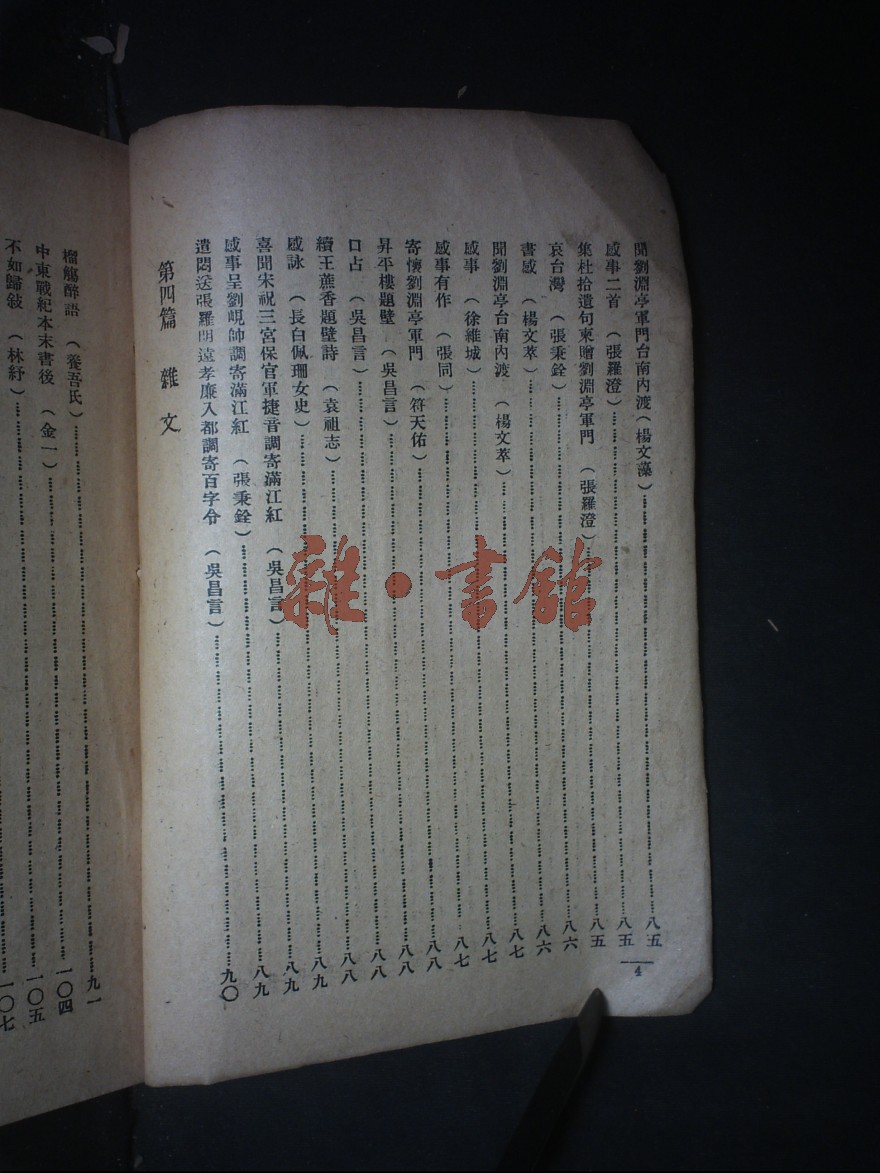 聞劉淵亭軍門台南內渡(楊文藻)……八五
感事二首 (張羅澄)……八五
集杜拾遺句柬贈劉淵亭軍門 (張羅澄)……八五
哀台灣 (張秉銓)……八六
書感 (楊文萃)……八六
聞劉淵亭台南內渡 (楊文萃)……八七
感事 (徐維城)……八七
感事有作 (張同)……八七
寄懷劉淵亭軍門 (符天佑)……八八
昇平樓題壁 (吳昌言)……八八
口占 (吳昌言)……八八
續王蕉香題壁詩 (袁祖志)……八八
感詠 (長白佩珊女史)……八九
喜聞宋祝三宮保官軍捷音調寄滿江紅 (吳昌言)……八九
感事呈劉峴帥調寄滿江紅 (張秉銓)……八九
遣悶送張羅閒遠孝廉入都調寄百字令 (吳昌言)……九〇
第四篇 雜文
榴觴醉語 (養吾氏)……九一
中東戰紀本末書後 (金一)……一〇四
不如歸敍 (林紓)……一〇五
一〇七
4
雜·書館